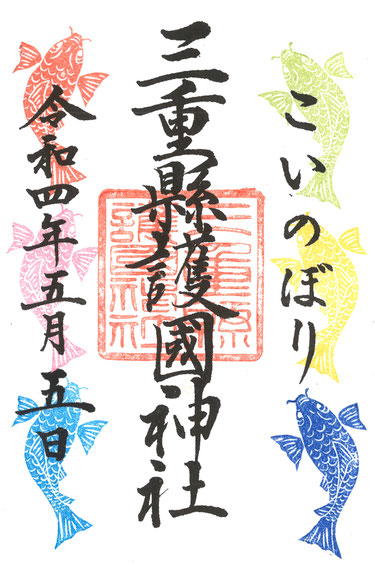 こいのぼり
三重縣護國神社
令和四年五月五日
三重縣護國神社